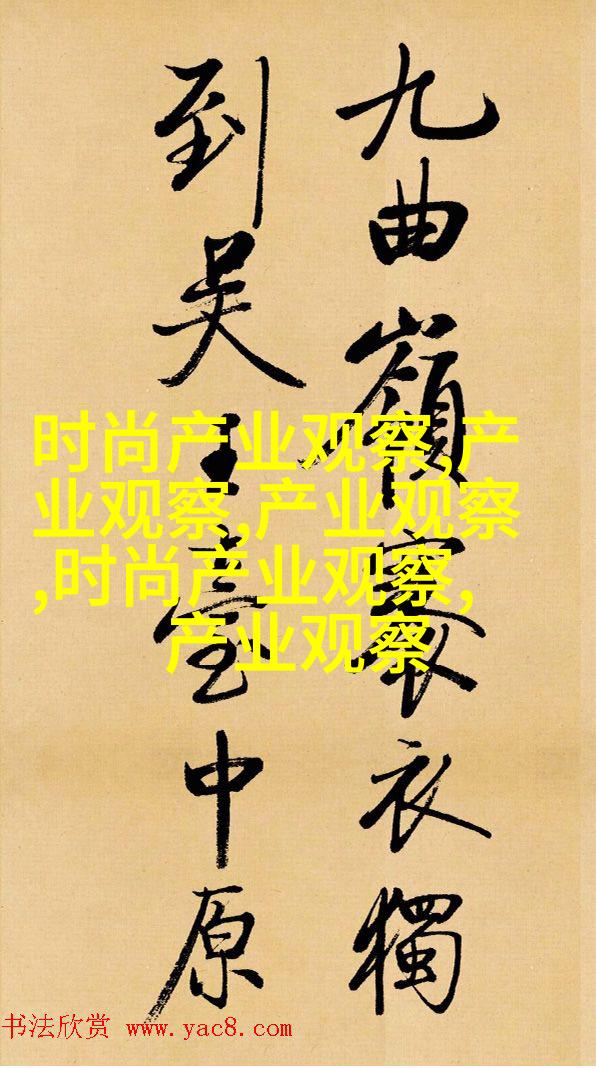 九曲嶺褰衣獨
到吳王臺中原
时尚产业观察,产
业观察,产业观察
,时尚产业观察,
产业观察
书法欣赏 www.yac8.com